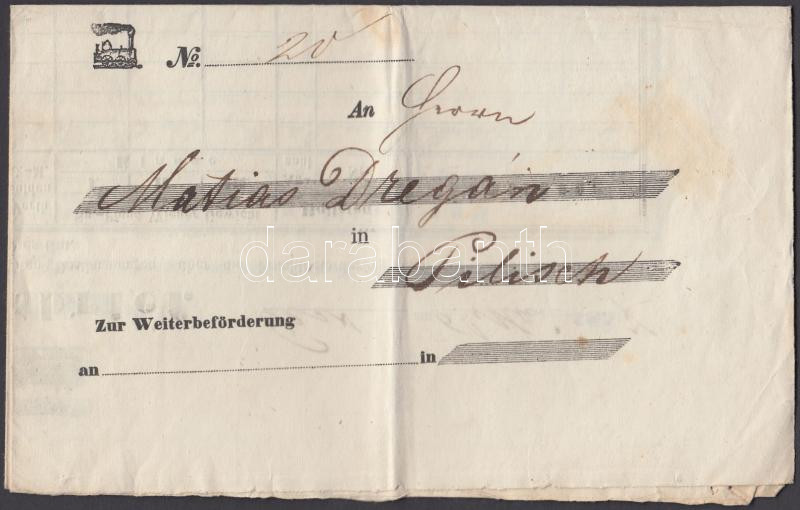 No. 20
An Herrn
Matias Dregán
in
darabanth
Pilisch
Zur Weiterbeförderung
an in